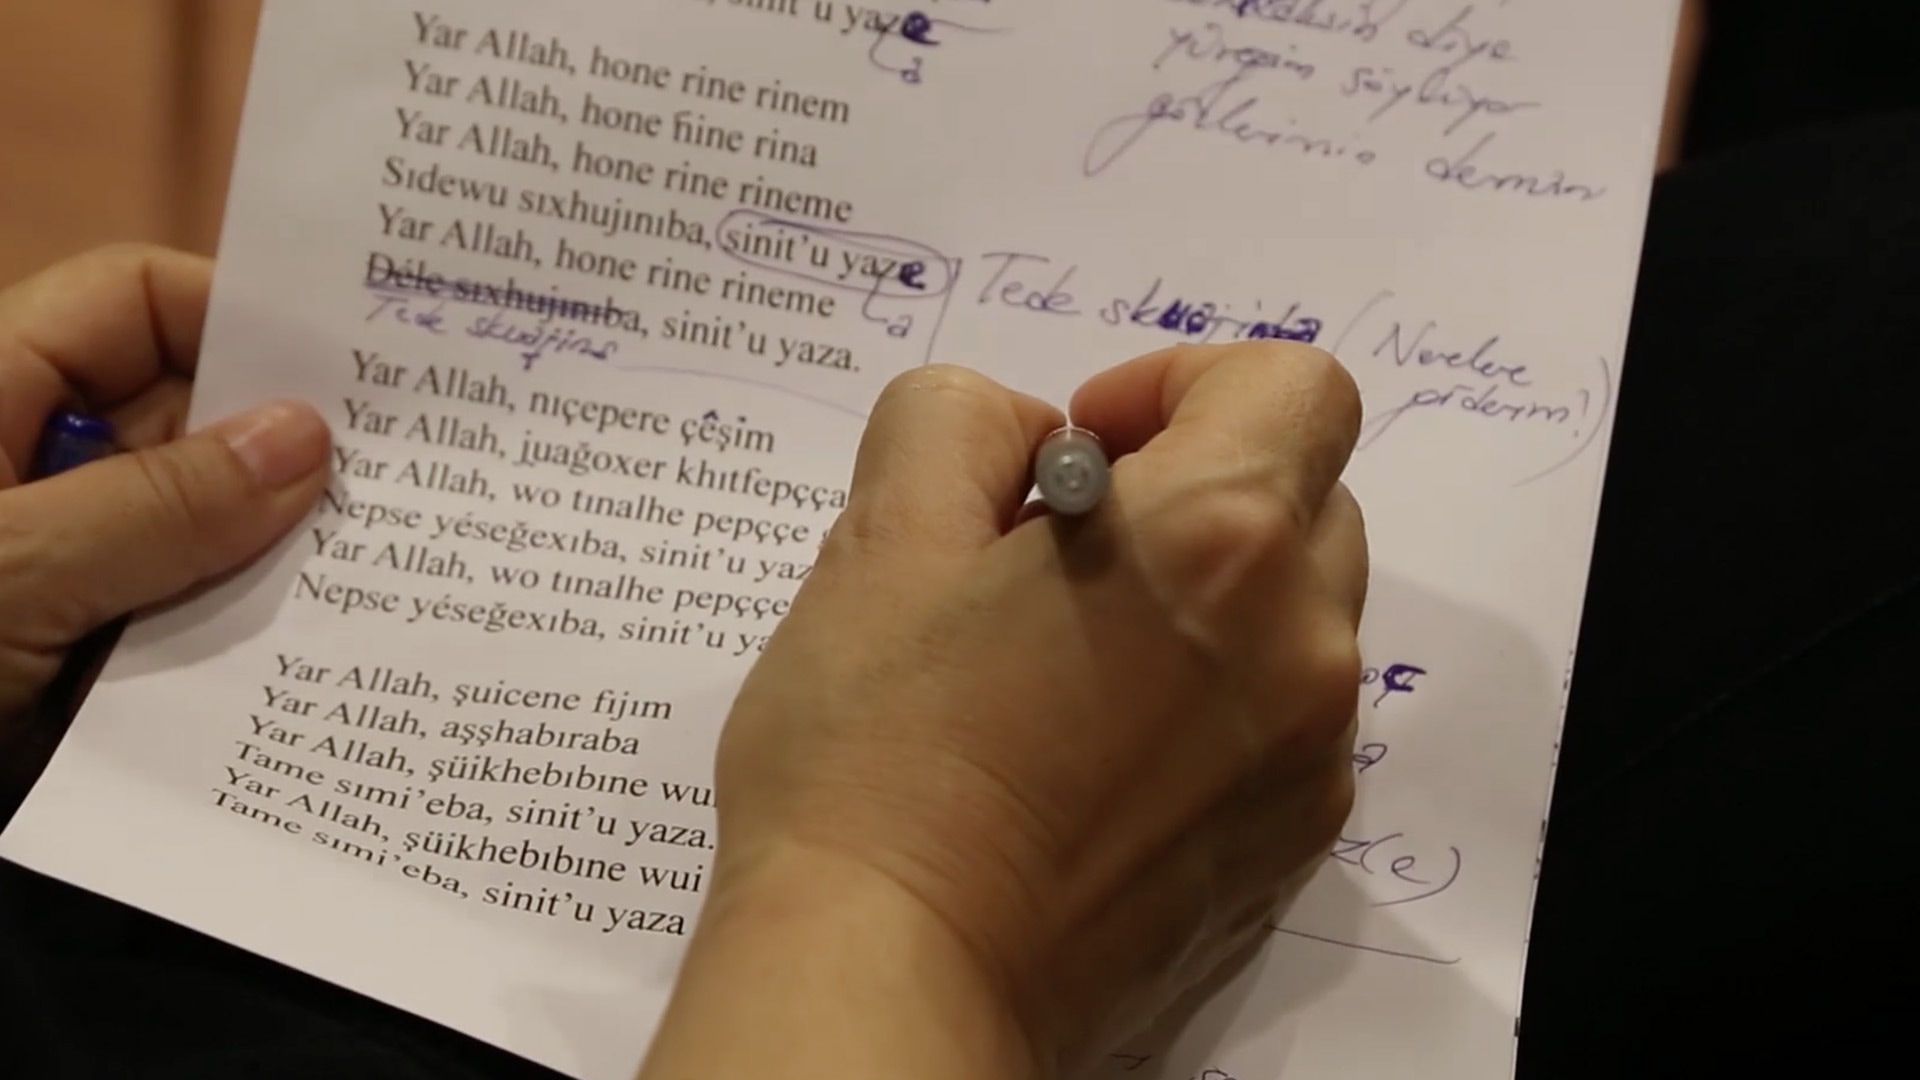 sinit'u yaze
a
Yar Allah, hone rine rinem
Yar Allah, hone fiine rina
Yar Allah, hone rine rineme
Sıdewu sıxhujınıba, sinit'u yaze
a
Yar Allah, hone rine rineme
Déle sıxhujınıba, sinit'u yaza.
Tede
Yar Allah, nıçepere çêşim
Yar Allah, juağoxer khıtfepçça
Yar Allah, wo tınalhe pepççe
Nepse yéseğexıba, sinit'u yaz
Yar Allah, wo tınalhe pepççe
Nepse yéseğexıba, sinit'u ya
Yar Allah, şuicene fıjım
Yar Allah, aşşhabıraba
Yar Allah, şüikhebıbıne wui
Tame sımi'eba, sinit'u yaza.
Yar Allah, şüikhebıbıne wui
Tame sımi'eba, sinit'u yaza
diye
yüreğim söylüyor
gözlerimin
Tede
(Nerelere
giderim?)
a
z(e)